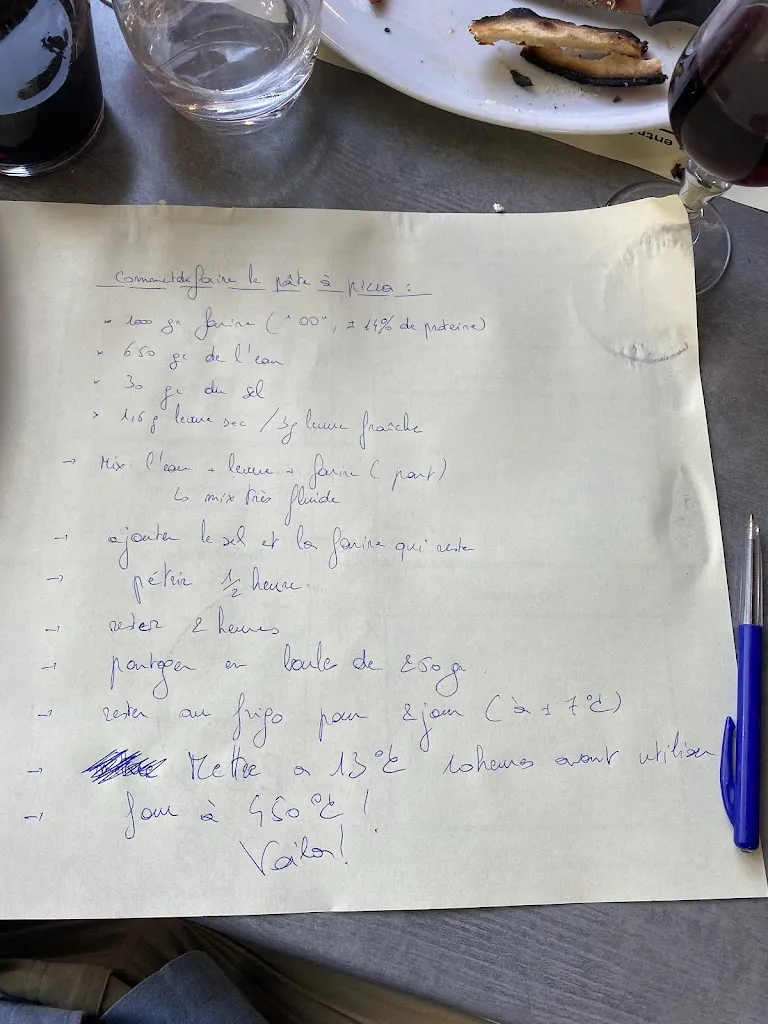 Comment de faire le pâte à pizza :
- 1000 gr farine ("00", ± 14% de proteine)
- 650 gr de l'eau
- 30 gr du sel
> 1,5 g levure sec / 3g levure fraîche
→ Mix l'eau + levure + farine (part)
↳ mix très fluide
→ ajouter le sel et la farine qui reste
→ pétrir 1/2 heure
→ rester 2 heures
→ partager en boule de 250 gr
→ rester au frigo pour 2 jour (à ± 7°C)
→ Mettre a 13°C 10 heures avant utiliser
→ four à 450°C !
Voila!